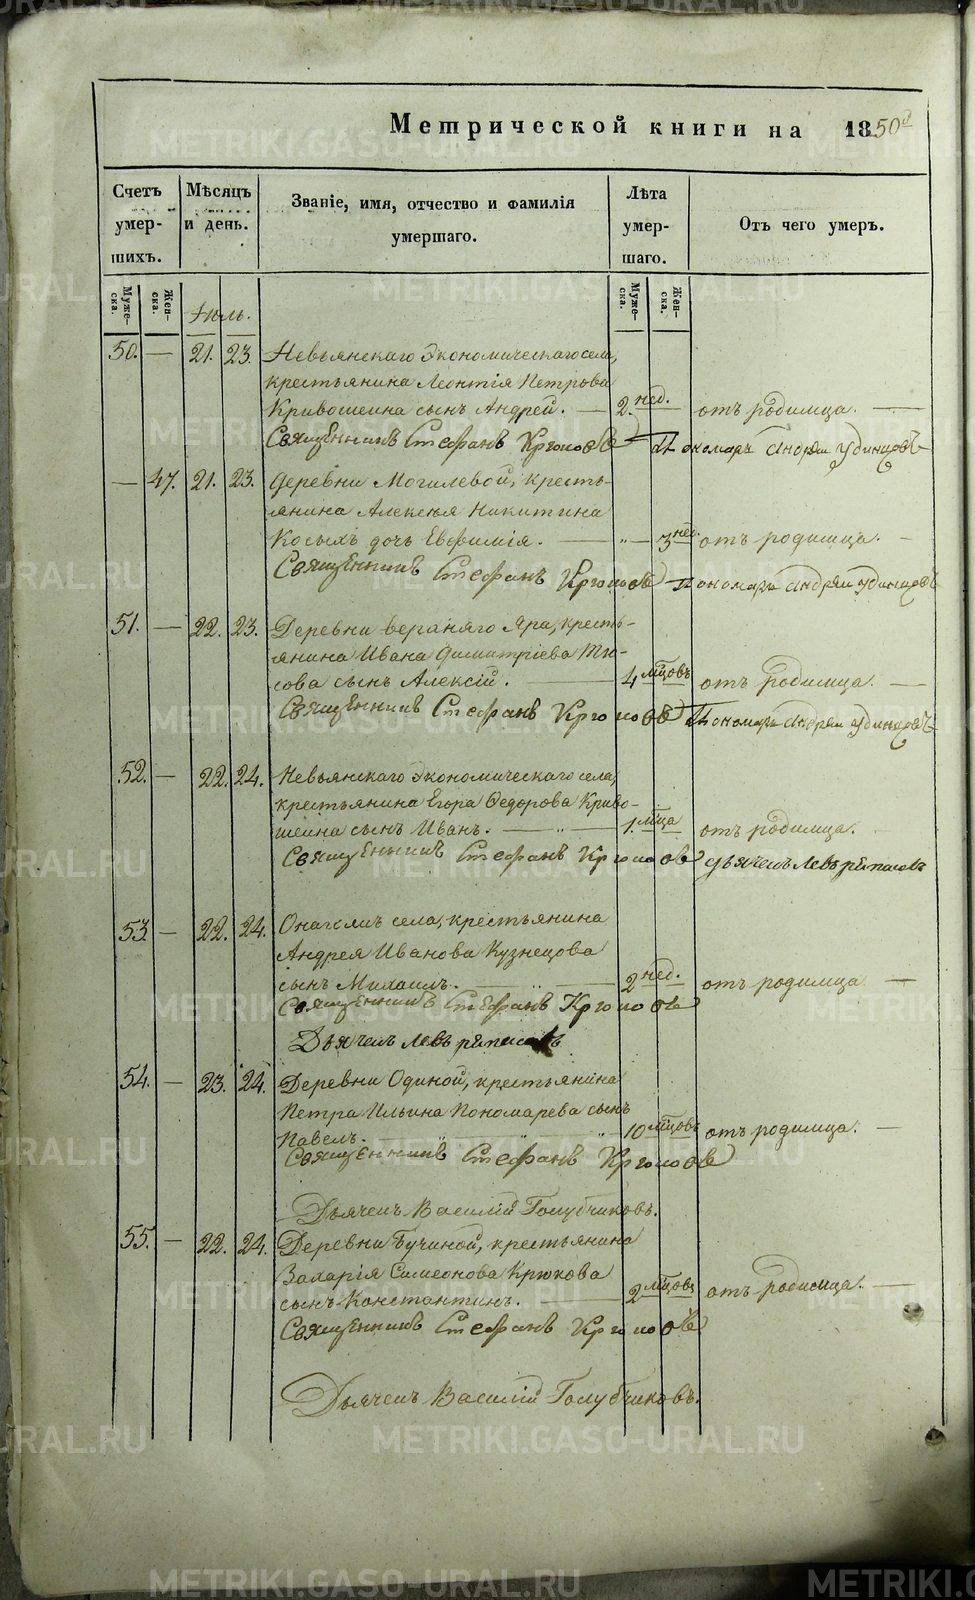 Метрической книги на 1850й
Счетъ умер- шихъ.
Мѣсяцъ и день.
Званіе, имя, отчество и фамилія умершаго.
Лѣта умер- шаго.
Отъ чего умеръ.
Муже- ска.
Жен- ска.
Муже- ска.
Жен- ска.
Іюль.
50. — 21. 23. Невьянскаго Экономическаго села,
крестьянина Леонтія Петрова
Кривошеина сынъ Андрей. — 2. нед. отъ родимца. —
Священникъ Стефанъ Пономарь Андрей Удинцовъ
— 47. 21. 23. Деревни Могилевой, кресть-
янина Алексѣя Никитина
Косыхъ дочь Евфимія. — „ — 3 нед отъ родимца. —
Священникъ Стефанъ Пономарь Андрей Удинцовъ
51. — 22. 23. Деревни верхняго Яра, кресть-
янина Ивана Димитріева Ти-
сова сынъ Алексій. — 4 мцовъ отъ родимца. —
Священникъ Стефанъ Пономарь Андрей Удинцовъ
52. — 22. 24. Невьянскаго Экономическаго села,
крестьянина Егора Ѳедорова Криво-
шеина сынъ Иванъ. — „ — 1. мца отъ родимца.
Священникъ Стефанъ Дьячекъ Левъ
53. — 22. 24. Онагожъ села, крестьянина
Андрея Иванова Кузнецова
сынъ Михаилъ. — 2 нед. отъ родимца —
Священникъ Стефанъ
Дьячекъ Левъ
54. — 23. 24. Деревни Одиной, крестьянина
Петра Ильина Пономарева сынъ
Павелъ. — „ „ „ 10 мцовъ отъ родимца. —
Священникъ Стефанъ
Дьячекъ Василій Голубчиковъ.
55. — 22. 24. Деревни Бучиной, крестьянина
Захарія Симеонова Крюкова
сынъ Константинъ. — 2 мцовъ отъ родимца. —
Священникъ Стефанъ
Дьячекъ Василій Голубчиковъ.
METRIKI.GASO-URAL.RU